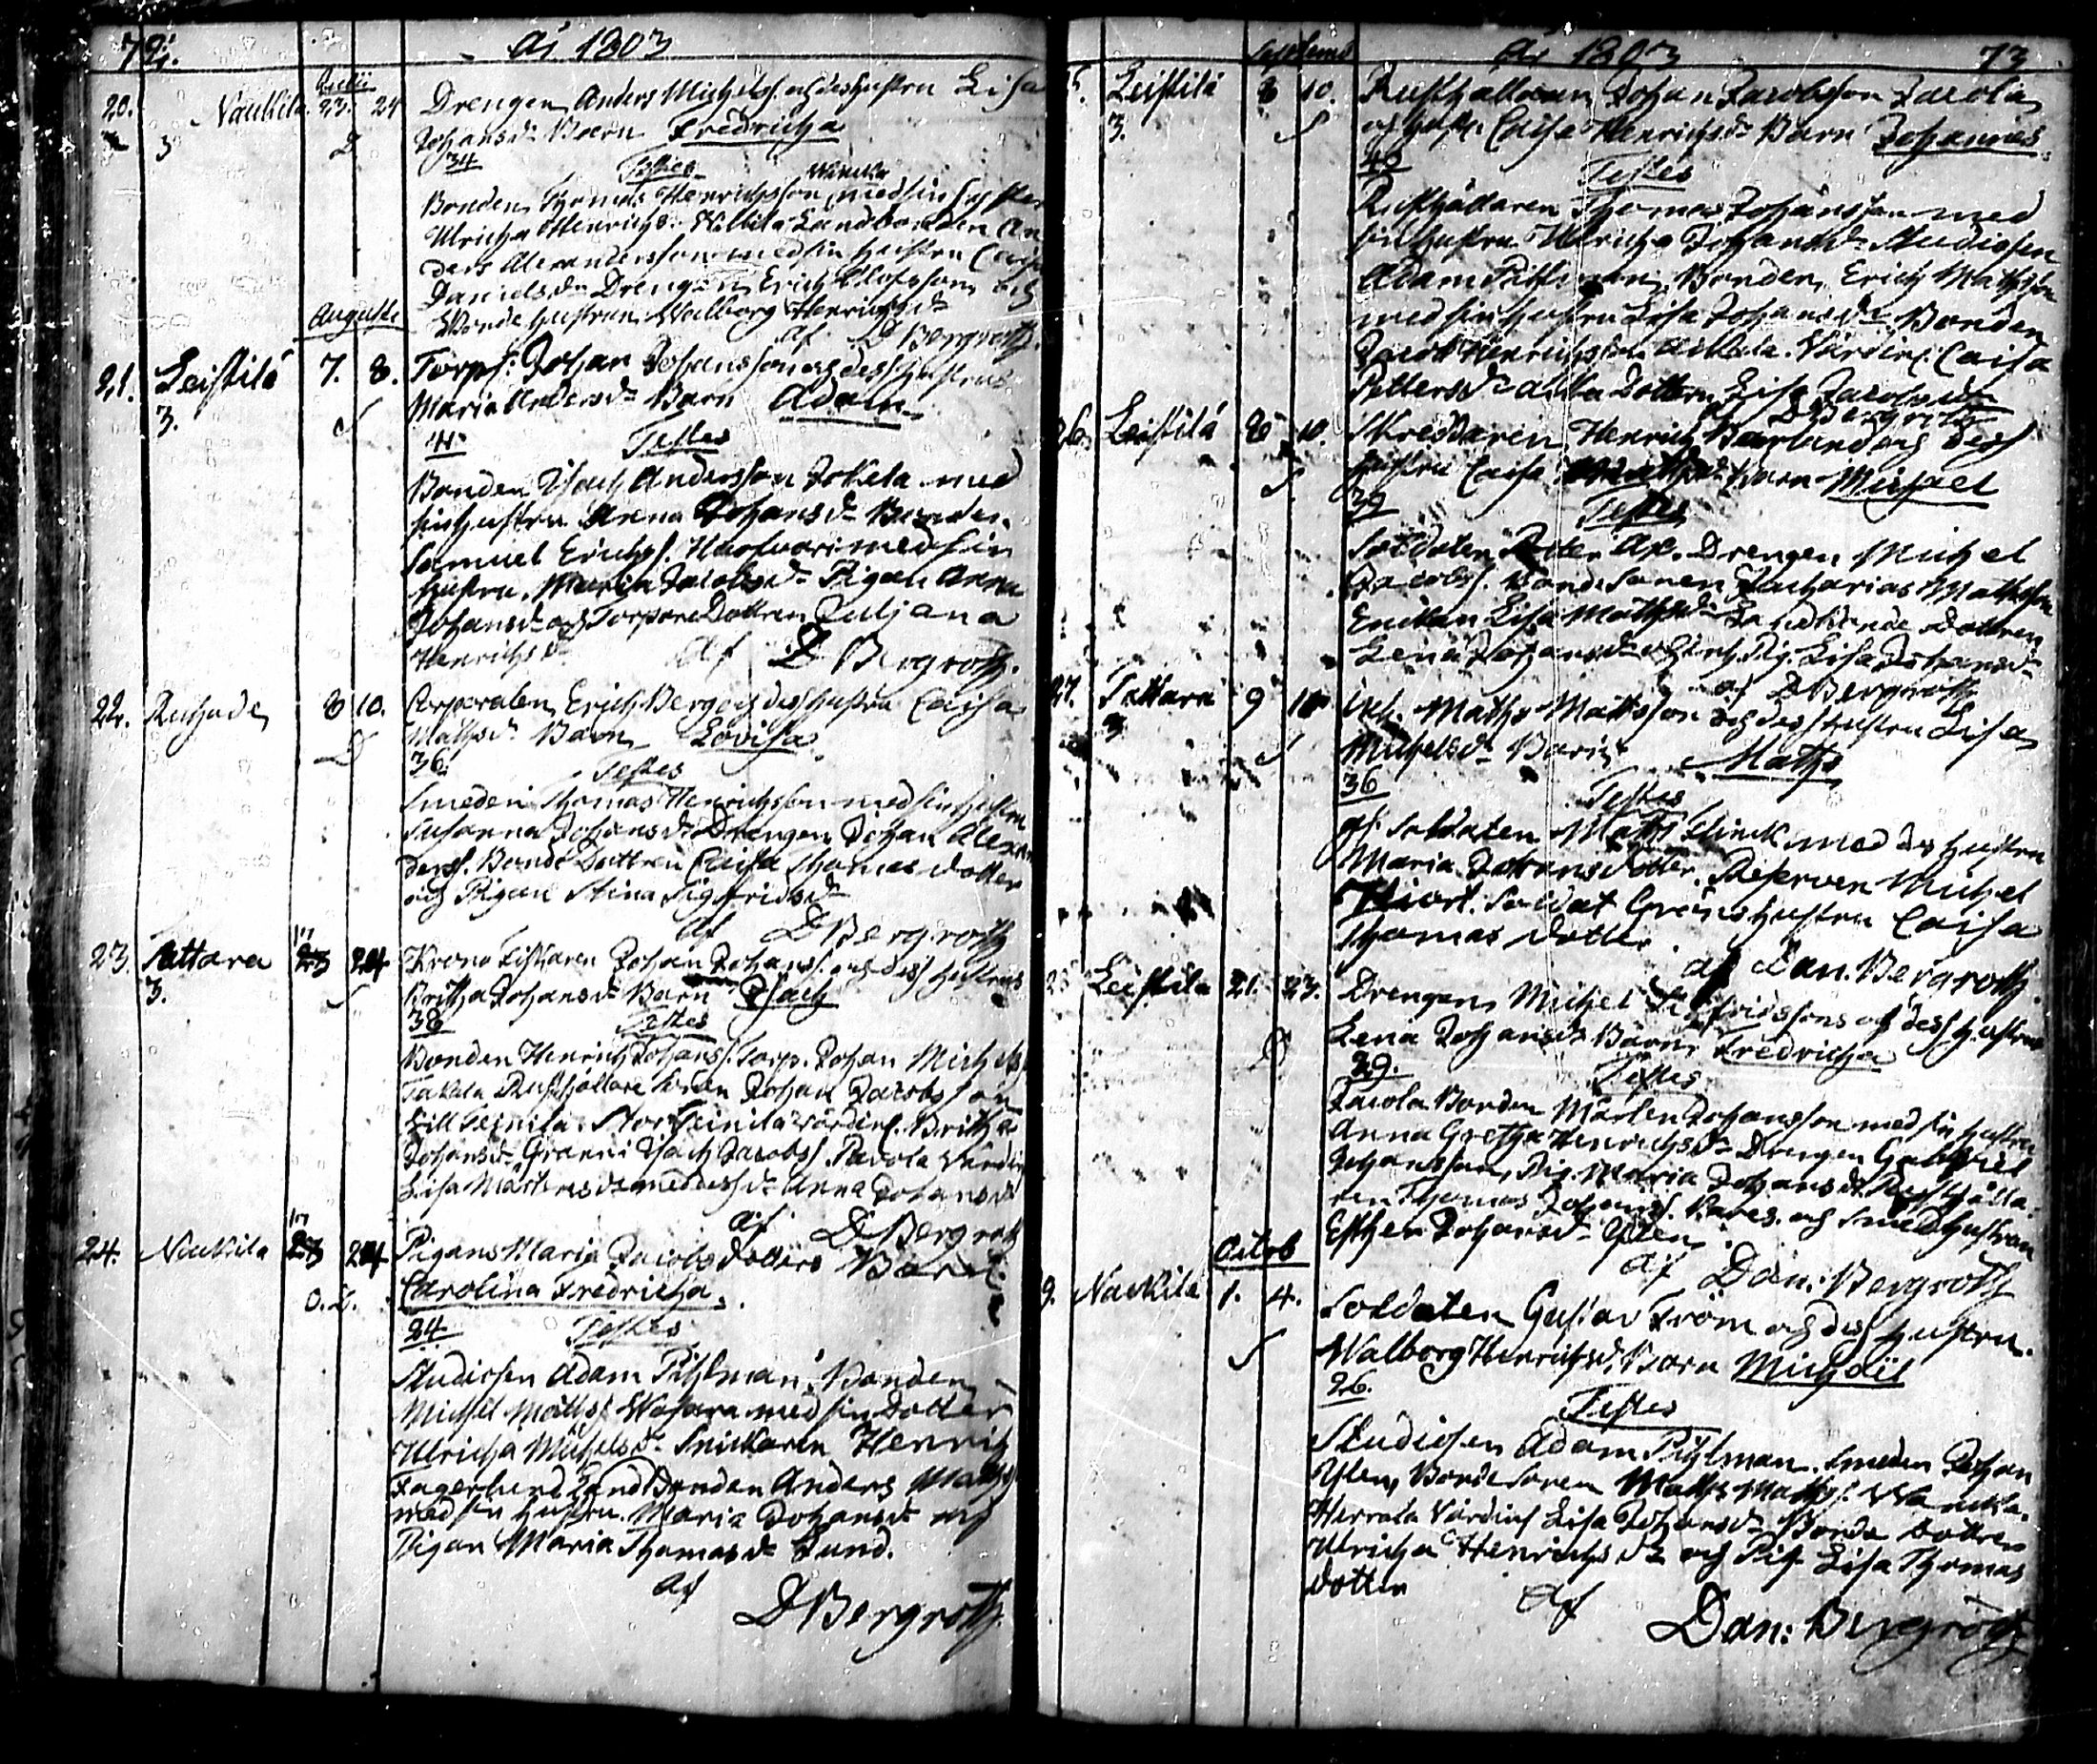 72. ai 1803
Julii
20. Naukila 23. 24 Drengen Anders Michelss. och des hustru Lisa
3 D Johansdr Barn Fredricha
34 Testes
Wäneka
Bonden Thomas Henrichsson, med sin
Ulricha Henrichsdr Landbonden An
ders Alexandersson med sin hustru Caisa
Daniels dr Drengen Erich Olofsson och
Bonde hustrun Walborg Henrichsdr
af D Bergroth.
Augusti
21. Leistilä 7. 8. Torp: Johan Johansson och dess hustrus
3. Maria Andersdr Barn Adam
41 Testes
Bonden Isach Andersson Jokela med
sin hustru Anna Johansdr Bonden
Samuel Erichss. med sin
hustru. Maria Jacobsdr Pigan Anna
Johansdr och Torpare Dottren Juljana
Henrichsdr af D Bergroth.
22. 8 10. Corporalen Erich Berg och des hustru Caisa
D Mathsdr Barn Lovisa.
36. Testes
Smeden Thomas Henrichsson med sin hustru
Susanna Johansdr Drengen Johan Alexan
derss. Bonde Dottren Caisa Thomas dotter
och Pigan Stina Sigfridsdr
af D Bergroth
23. Tattara 17 24 Krono Fiskaren Johan Johanss. och dess hustrus
3. Britha Johansdr Barn Isach
38 Testes
Bonden Henrich Johanss. Torp. Johan Michelss
Takala Rusthållare Sonen Johan Jacobsson
Lill Teinilä. Stor Teinilä värdin. Britha
Johansdr Granni Isach Jacobss. Pavola Värdin
Lisa Mårtensdr med dess dr Anna Johansdr
af D Bergroth
24. Naukila 17 24 Pigans Maria Jacobs dotters Barn
O. D. Carolina Fredricha.
24 Testes
Studiosen Adam Pihlman, Bonden
Michel Mattss Wasara med sin Dotter
Ulricha Michelsdr Snickaren Henrich
Fagerlund Landbonden Anders Mathss
med sin hustru. Maria Johansdr och
Pigan Maria Thomasdr Sund.
af
D Bergroth.
Septemb ai 1803 73
25. Leistilä 8 10. Rusthållaren Johan Jacobsson Jacola
3. och hustr. Caisa Henrichsdr Barn Johannes
Testes
Rusthållaren Thomas Johansson med
sin hustru Ulricha Johansdr Studiosen
Adam Pihlman, Bonden Erich Mathsson
med sin hustru Lisa Johansdr Bonden
Jacob Henrichsson Värdin. Caisa
Pettersdr Dottern Lisa Jacobsdr
D Bergroth
26. Leistilä 8 10. Skreddaren Henrich och dess
hustru Caisa Barn Michael
39 Testes
Soldaten Drengen Michel
Jacobss. Bonde Sonen Zacharias Mathsson
Enkan Lisa Mathsdr Landbonde Dottren
Lena Johansdr och Pig. Lisa Johansdr
af D Bergroth
27. Tattara 9 10 Maths Mattsson och des hustru Lisa
3 Michelsdr Barn Maths
36 Testes
Soldaten Maths Flinck med des hustru
Maria Johans dotter, Reserven Michel
Hiort. Soldat hustru Caisa
Thomas dotter
af Dan. Bergroth.
28 Leistila 21. 23. Drengen Michel Sigfridssons och dess hustrus
D Lena Johansdr Barn Fredricha
29. Testes
Jacola Bonden Mårten Johansson med sin hustru
Anna Gretha Henrichsdr Drengen Gabriel
Johansson, Pig. Maria Johansdr Rusthålla
ren Thomas Johanss. och Smedhustrun
Esther Johansdr Ylen.
af Dan: Bergroth
Octob
29. Naukila 1. 4. Soldaten Gustav Ström och dess hustru.
Walborg Henrichsdr Barn Michäel
26. Testes
Studiosen Adam Pihlman. Smeden Johan
Ylen, Bonde Sonen Maths Mathss.
Herrala Värdin Lisa Johansdr Bonde Dottren
Ulricha Henrichs Dr och Pig. Lisa Thomas
dotter af
Dan: Bergroth